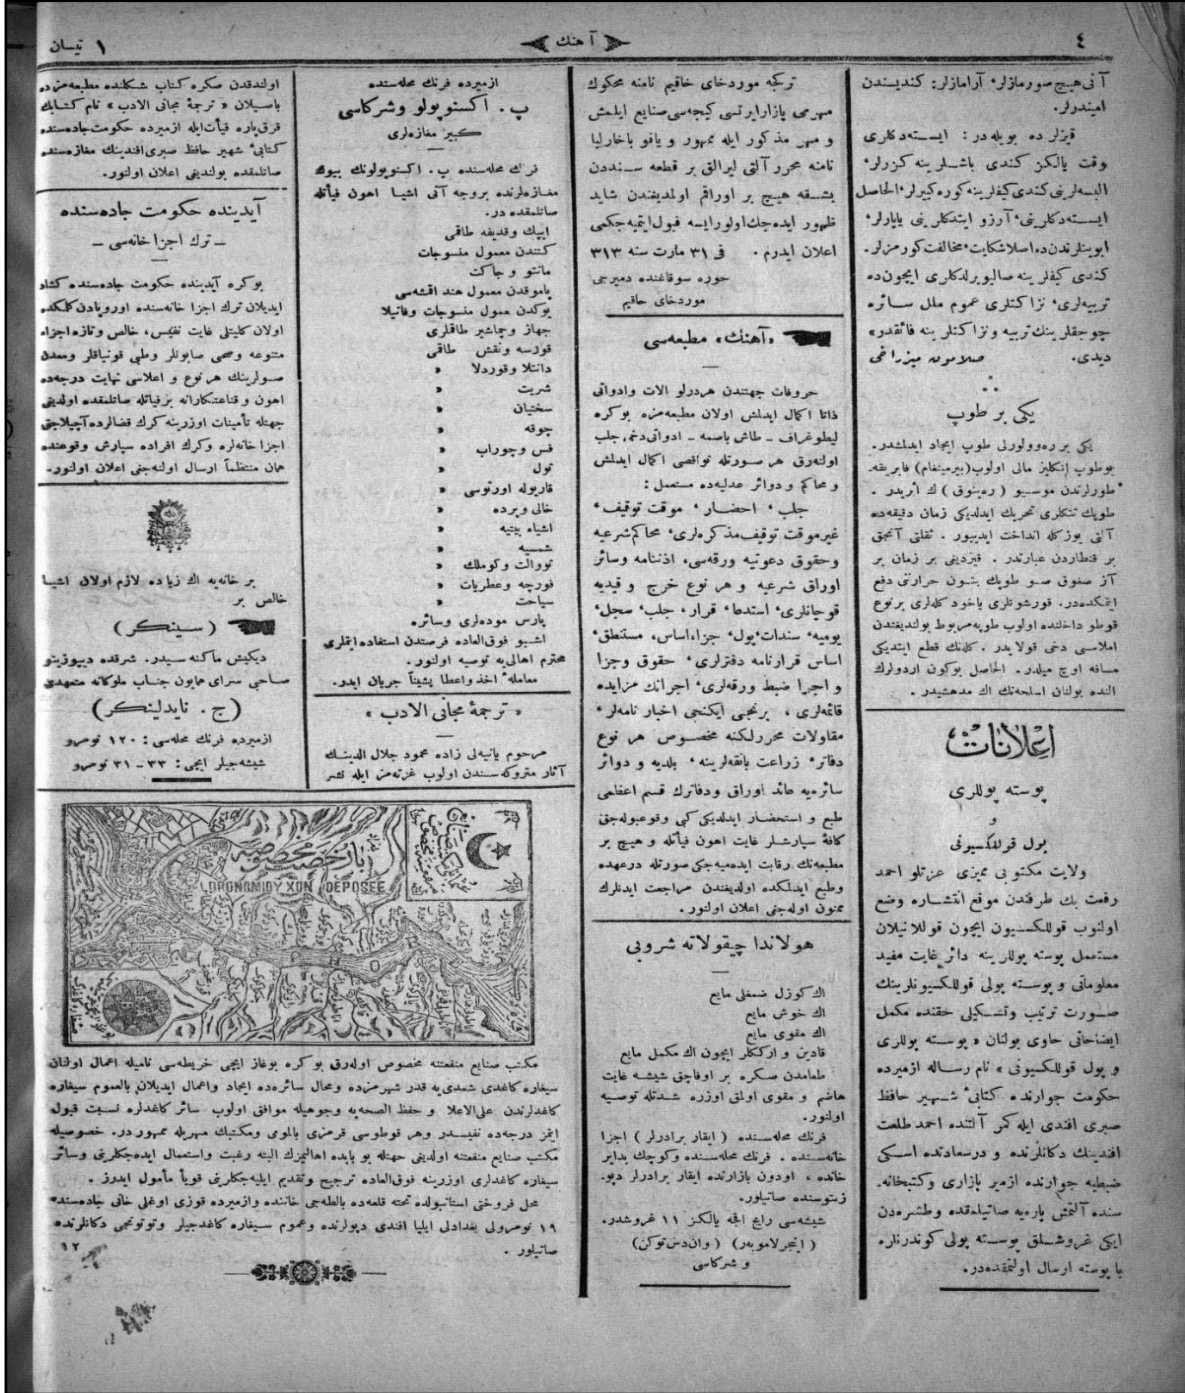 ٤
آهنك
١ نيسان
آنی هیچ صورمازلر، آرامازلر: كندیسندن
امیندرلر.
قیزلر ده بویله در: ایسته دكلری
وقت یالكز كندی باشلرینه كزرلر،
البسه لرینی كندی كیفلرینه كوره كییرلر، الحاصل
ایسته دكلرینی، آرزو ایتدكلرینی یاپارلر،
ابوینلرندن ده اصلا شكایت، مخالفت كورمزلر.
كندی كیفلرینه صالیویرلدكلری ایچون ده
تربیه لری، نزاكتلری عموم ملل سائره
چوجقلرینك تربیه ونزاكتلرینه فائقدر»
دیدی.
یكی بر طوپ
یكی بر ره وولورلی طوپ ایجاد ایدلمشدر.
بوطوپ انكلیز مالی اولوب (بیرمینغام) فابریقه
طورلرندن موسیو (ره ینوق) ك اثریدر.
طوپك تتكلری تحریك ایدلدیكی زمان دقیقه ده
آلتی یوز كله انداخت ایدییور. ثقلتی آنجق
بر قنطاردن عبارتدر. قیزدینی بر زمان بر
آز صغوق صو طوپك بتون حرارتی دفع
ایتمكده در. قورشونلری یاخود كله لری برنوع
قوطو داخلنده اولوب طوپه مربوط بولندیغندن
املاسی دخی قولایدر. كله نك قطع ایتدیكی
مسافه اوچ میلدر. الحاصل بوكون اردولرك
النده بولنان اسلحه نك اك مدهشیدر.
اعلانات
پوسته پوللری
و
پول قوللكسیونی
ولایت مكتوبی ممیزی عزتلو احمد
رفعت بك طرفندن موقع انتشاره وضع
اولنوب قوللكسیون ایچون قوللانیلان
مستعمل پوسته پوللرینه دائر غایت مفید
معلوماتی و پوسته پولی قوللكسیونلرینك
صورت ترتیب وتشكیلی حقنده مكمل
ایضاحاتی حاوی بولنان «پوسته پوللری
و پول قوللكسیونی» نام رساله ازمیرده
حكومت جوارنده كتابئ شهیر حافظ
صبری افندی ایله كمر آلتنده احمد طلعت
افندینك دكانلرنده و درسعادتده اسكی
ضبطیه جوارنده ازمیر پازاری وكتبخانه
سنده آلتمش پاره یه صاتیلمقده وطشره دن
ایكی غروشلق پوسته پولی كوندرنلره
با پوسته ارسال اولنمقده در.
تركجه موردخای خاقیم نامنه محكوك
مهرمی پازارایرتسی كیجه سی صنایع ایلمش
و مهر مذكور ایله ممهور و یافو باخارلیا
نامنه محرر آلتی لیرالق بر قطعه سنددن
بشقه هیچ بر اوراقم اولمدیغندن شاید
ظهور ایده جك اولورایسه قبول ایتمیه جكمی
اعلان ایدرم. فی ٣١ مارت سنه ٣١٣
حوره سوقاغنده دمیرجی
موردخای حاقیم
«آهنك» مطبعه سی
حروفات جهتندن هردرلو الات وادواتی
ذاتا اكمال ایدلمش اولان مطبعه مزه بوكره
لیطوغراف - طاش باصمه - ادواتی دخی جلب
اولنه رق هر صورتله نواقصی اكمال ایدلمش
و محاكم و دوائر عدلیه ده مستعمل:
جلب، احضار، موقت توقیف،
غیرموقت توقیف مذكره لری، محاكم شرعیه
وحقوق دعوتیه ورقه سی، اذننامه وسائر
اوراق شرعیه و هر نوع خرج و قیدیه
قوچانلری، استدعا، قرار، جلب، سجل،
یومیه، سندات، پول، جزاء اساس، مستنطق،
اساس قرارنامه دفترلری، حقوق وجزا
و اجرا ضبط ورقه لری، اجرانك مزایده
قائمه لری، برنجی ایكنجی اخبار نامه لر،
مقاولات محررلكنه مخصوص هر نوع
دفاتر، زراعت بانقه لرینه، بلدیه و دوائر
سائره یه عائد اوراق ودفاترك قسم اعظمی
طبع و استحضار ایدلدیكی كبی وقوعبوله جق
كافۀ سپارشلر غایت اهون فیأتله و هیچ بر
مطبعه نك رقابت ایده میه جكی صورتله درعهده
وطبع ایدلمكده اولدیغندن مراجعت ایدنلرك
ممنون اوله جنی اعلان اولنور.
هولاندا چیقولاته شروبی
اك كوزل ضمغلی مایع
اك خوش مایع
اك مقوی مایع
قادین و ارككلر ایچون اك مكمل مایع
طعامدن صكره بر اوفاجق شیشه غایت
هاضم و مقوی اولمق اوزره شدتله توصیه
اولنور.
فرنك محله سنده (ایقار برادرلر) اجزا
خانه سنده، فرنك محله سنده وكوچك بدایر
خانده، اودون بازارنده ایقار برادرلر دپو
زیتوسنده صاتیلور.
شیشه سی رایج اقچه یالكز ١١ غروشدر.
(اینجرلاموبهر) (وان دس توكن)
و شركاسی
ازمیرده فرنك محله سنده
پ. اكسنوپولو وشركاسی
كبیر مغازه لری
فرنك محله سنده پ. اكسنوپولونك بیوك
مغازه لرنده بروجه آتی اشیا اهون فیأتله
صاتلمقده در.
ایپك وقدیفه طاقی
كتندن معمول منسوجات
مانتو و جاكت
پاموقدن معمول هند اقشه سی
یوكدن معمول منسوجات وفانیلا
جهاز وچماشیر طاقلری
قورسه ونقش طاقی
دانتلا وقوردلا »
شریت »
سختیان »
چوقه »
فس وجوراب »
تول »
قاریوله اورتوسی »
خالی وپرده »
اشیاء بیتیه »
شمسیه »
تووالت وكوملك »
فورچه وعطریات »
سیاحت »
پارس موده لری وسائره
اشبو فوق العاده فرصتدن استفاده ایتملری
محترم اهالی یه توصیه اولنور.
معامله، اخذ واعطا پشیناً جریان ایدر.
«ترجمۀ مجانی الادب»
مرحوم یانیه لی زاده محمود جلال الدینك
آثار متروكه سندن اولوب غزته مز ایله نشر
اولندقدن صكره كتاب شكلنده مطبعه مزده
باصیلان «ترجمۀ مجانی الادب» نام كتابك
قرق پاره فیأت ایله ازمیرده حكومت جاده سنده
كتابئ شهیر حافظ صبری افندینك مغازه سنده
صاتلمقده بولندیغی اعلان اولنور.
آیدینده حكومت جاده سنده
- ترك اجزا خانه سی -
بوكره آیدینده حكومت جاده سنده كشاد
ایدیلان ترك اجزا خانه سنده اوروپادن كلمكده
اولان كلیتلی غایت نفیس، خالص وتازه اجزاء
متنوعه وصحی صابونلر وطبی قونیاقلر ومعدن
صولرینك هر نوع و اعلاسی نهایت درجه ده
اهون و قناعتكارانه بر فیأتله صاتلمقده اولدینی
جهتله تأمینات اوزرینه كرك قضالرده آچیلاجق
اجزا خانه لره وكرك افراده سپارش وقوعنده
همان منتظماً ارسال اولنه جنی اعلان اولنور.
بر خانه یه اك زیاده لازم اولان اشیا
خالص بر
(سینكر)
دیكیش ماكنه سیدر. شرقده دیپوزیتو
صاحبی سرای همایون جناب ملوكانه متعهدی
(ج. نایدلینكر)
ازمیرده فرنك محله سی: ١٢٠ نومرو
شیشه جیلر ایچی: ٣٣ - ٣١ نومرو
DPONOMIDYXON DEPOSEE
BOSPHORE
مكتب صنایع منفعتنه مخصوص اوله رق بو كره بوغاز ایچی خریطه سی نامیله اعمال اولنان
سیغاره كاغدی شمدی یه قدر شهرمزده ومحال سائره ده ایجاد واعمال ایدیلان بالعموم سیغاره
كاغدلرندن علی الاعلا و حفظ الصحه یه وجوهیله موافق اولوب سائر كاغدلره نسبت قبول
ایتمز درجه ده نفیسدر وهر قوطوسی قرمزی بالمومی ومكتبك مهریله ممهور در. خصوصیله
مكتب صنایع منفعتنه اولدینی جهتله بو بابده اهالیمزك البته رغبت واستعمال ایده جكلرینی وسائر
سیغاره كاغدلری اوزرینه فوق العاده ترجیح وتقدیم ایلیه جكلرینی قویاً مأمول ایدرز.
محل فروختی استانبولده تحته قلعه ده بالطه جی خاننده وازمیرده قوزی اوغلی خانی جاده سنده
١٩ نومرولی بغدادلی ایلیا افندی دپولرنده وعموم سیغاره كاغدجیلر وتوتونجی دكانلرنده
صاتیلور.
١٢